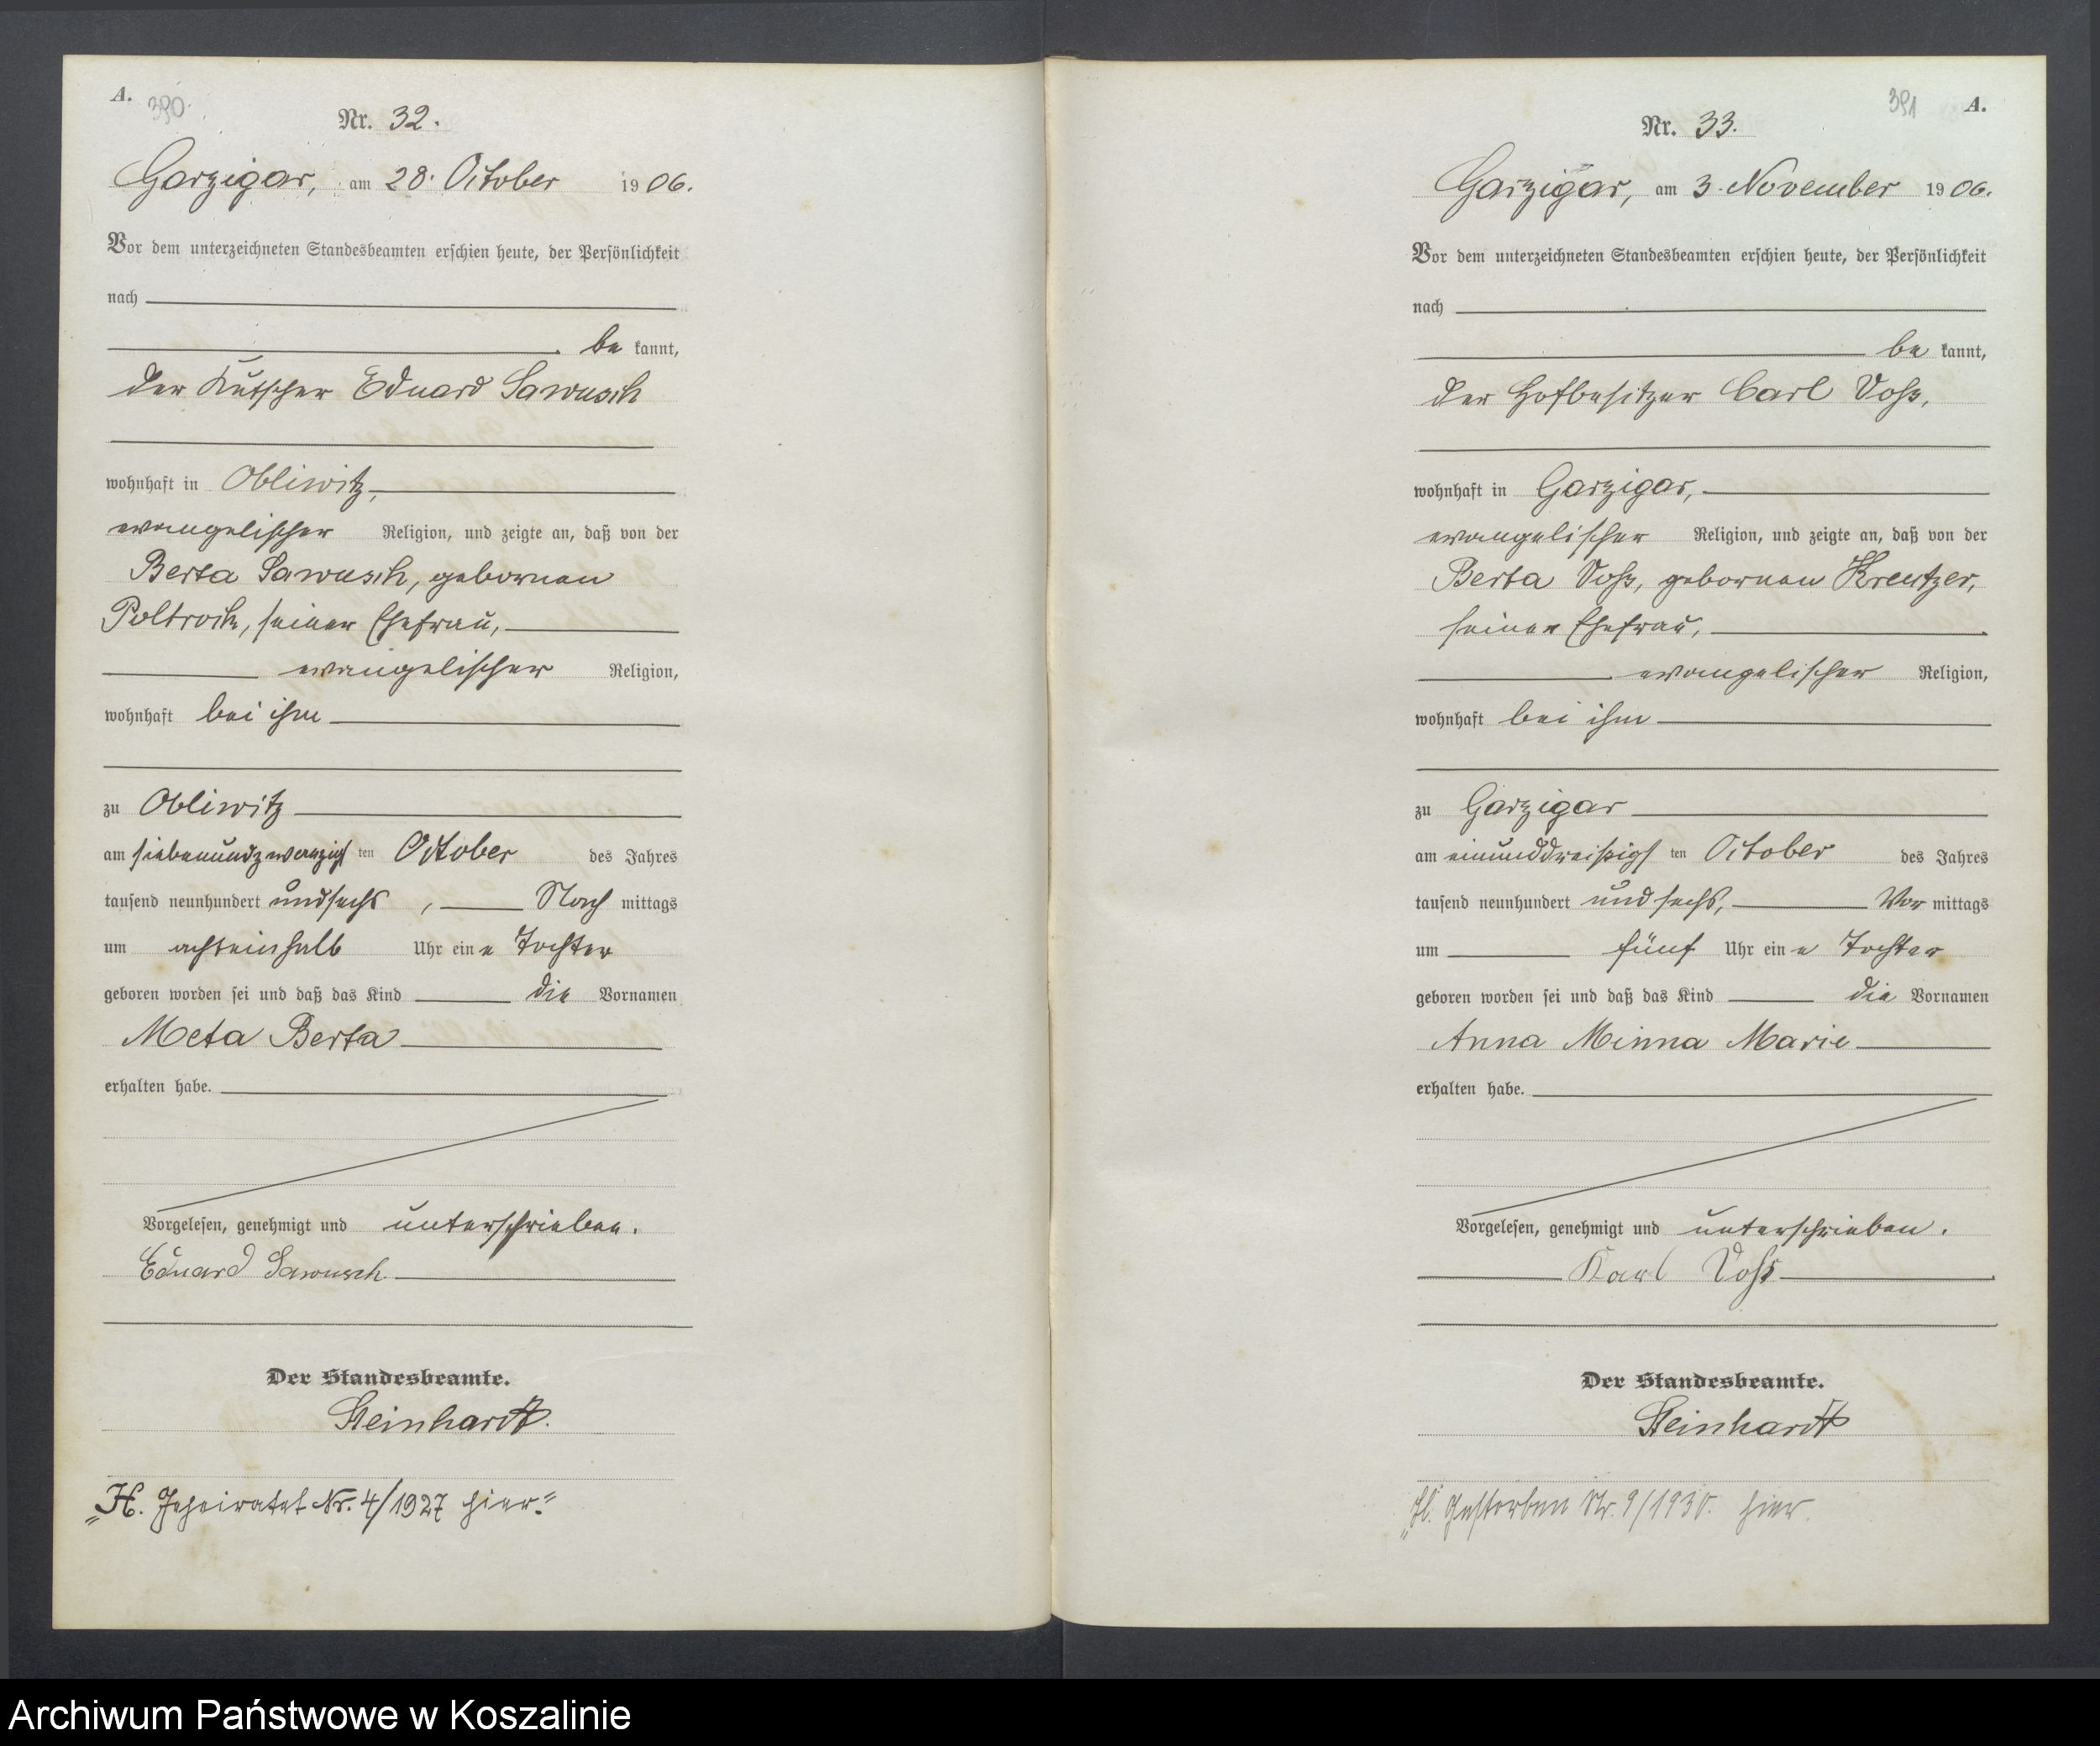 A.
390.
Nr. 32.
Garzigar, am 28. October 1906.
Vor dem unterzeichneten Standesbeamten erschien heute, der Persönlichkeit
nach
be kannt,
der Kutscher Eduard Sawusch
wohnhaft in Obliwitz,
evangelischer Religion, und zeigte an, daß von der
Berta Sawusch, gebornen
Poltrock, seiner Ehefrau,
evangelischer Religion,
wohnhaft bei ihm
zu Obliwitz
am siebenundzwanzigsten October des Jahres
tausend neunhundert und sechs, Nach mittags
um achteinhalb Uhr eine Tochter
geboren worden sei und daß das Kind die Vornamen
Meta Berta
erhalten habe.
Vorgelesen, genehmigt und unterschrieben.
Eduard Sawusch
Der Standesbeamte.
Steinhardt.
„H. Geheiratet Nr. 4/1927 hier.“
391
A.
Nr. 33.
Garzigar, am 3. November 1906.
Vor dem unterzeichneten Standesbeamten erschien heute, der Persönlichkeit
nach
be kannt,
der Hofbesitzer Carl Voß,
wohnhaft in Garzigar,
evangelischer Religion, und zeigte an, daß von der
Berta Voß, gebornen Kreutzer,
seiner Ehefrau,
evangelischer Religion,
wohnhaft bei ihm
zu Garzigar
am einunddreißigsten October des Jahres
tausend neunhundert und sechs, Vor mittags
um fünf Uhr eine Tochter
geboren worden sei und daß das Kind die Vornamen
Anna Minna Marie
erhalten habe.
Vorgelesen, genehmigt und unterschrieben.
Karl Voß
Der Standesbeamte.
Steinhardt
Gestorben Nr. 9/1930. hier.
Archiwum Państwowe w Koszalinie